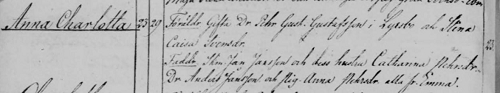 Anna Charlotta 23 29 Föräldr. Gifta Dr. Pehr Gust. Gustafsson i Lysebo och Stena
Caisa Svensdr.
Faddr. Jan Jansson och dess hustru Catharina Pehrsdr.
Dr. Anders Jansson och Pig. Anna Pehrsdr. alla fr.
23